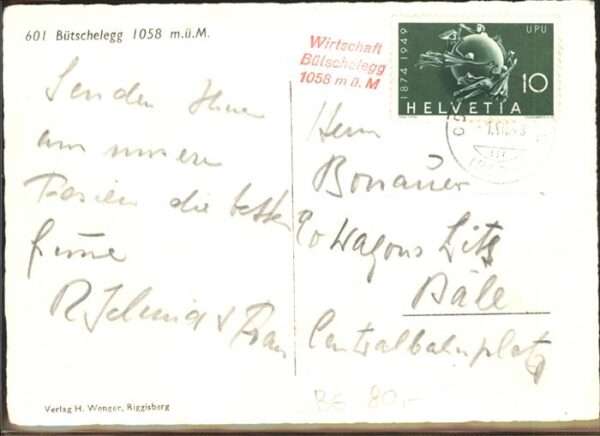 601 Bütschelegg 1058 m.ü.M.
Wirtschaft
Bütschelegg
1058 m ü. M
1874-1949
UPU
10
HELVETIA
Senden Ihnen
aus unsern
Ferien die besten
Grüsse
R. Schmid & Frau
Herrn
Bonauer
c/o Wagons Lits
Bâle
Centralbahnplatz
BE 80.-
Verlag H. Wenger, Riggisberg